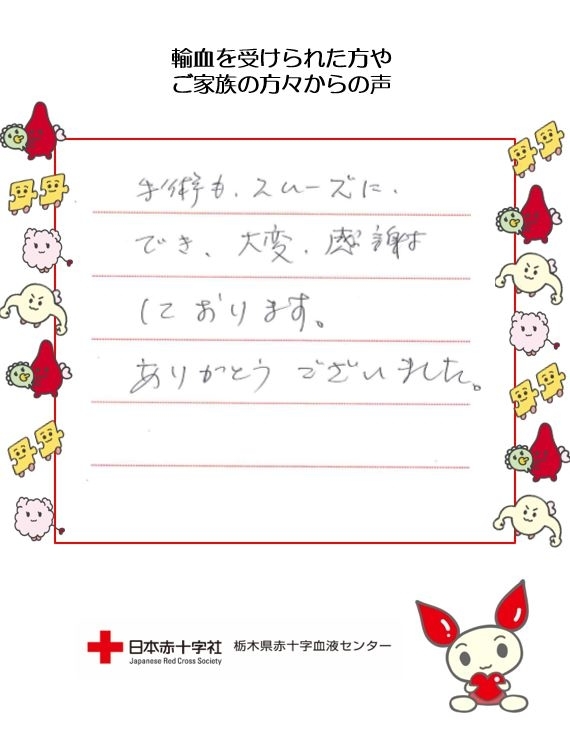 輸血を受けられた方や
ご家族の方々からの声
手術も、スムーズに、
でき、大変、感謝は
しております。
ありがとうございました。
日本赤十字社 栃木県赤十字血液センター
Japanese Red Cross Society